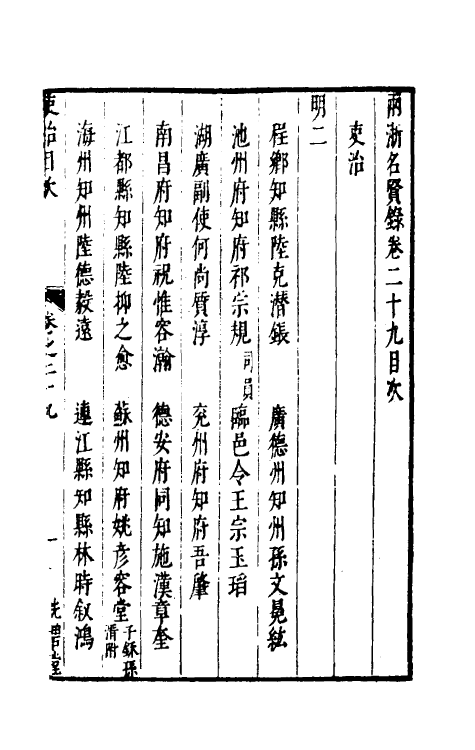 兩浙名賢錄卷二十九目次
吏治
明二
程鄉知縣陸克潛鋹
廣德州知州孫文冕紘
池州府知府祁宗規司員
臨邑令王宗玉瑫
湖廣副使何尚質淳
兗州府知府吾肇
南昌府知府祝惟容瀚
德安府同知施漢章奎
江都縣知縣陸抑之愈
蘇州知府姚彥容堂子鉌孫濳附
海州知州陸德毅遠
連江縣知縣林時叙鴻
吏治目次
卷之二十九
一
光碧堂